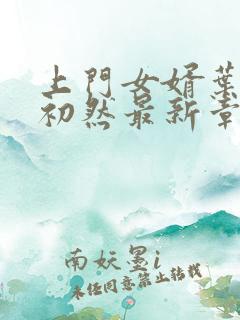 上門女婿葉
初然最新章
南妖墨i
未任同意禁止轉載